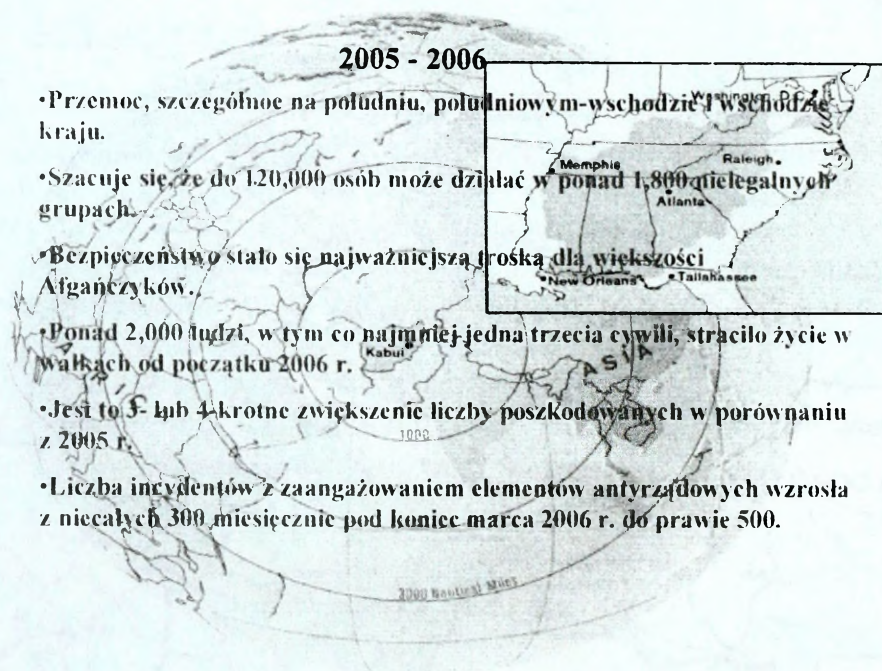 2005 - 2006
•Przemoc, szczególnoe na południu, południowym-wschodzie i wschodzie
kraju.
•Szacuje się, że do 120,000 osób może działać w ponad 1,800 nielegalnych
grupach.
•Bezpieczeństwo stało się najważniejszą troską dla większości
Afgańczyków.
•Ponad 2,000 ludzi, w tym co najmniej jedna trzecia cywili, straciło życie w
walkach od początku 2006 r.
•Jest to 3- lub 4-krotne zwiększenie liczby poszkodowanych w porównaniu
z 2005 r.
•Liczba incydentów z zaangażowaniem elementów antyrządowych wzrosła
z niecałych 300 miesięcznie pod koniec marca 2006 r. do prawie 500.
Washington D.C.
Memphis
Raleigh
Atlanta
New Orleans
Tallahassee
Kabul
ASIA
1000
2000 Nautical Miles